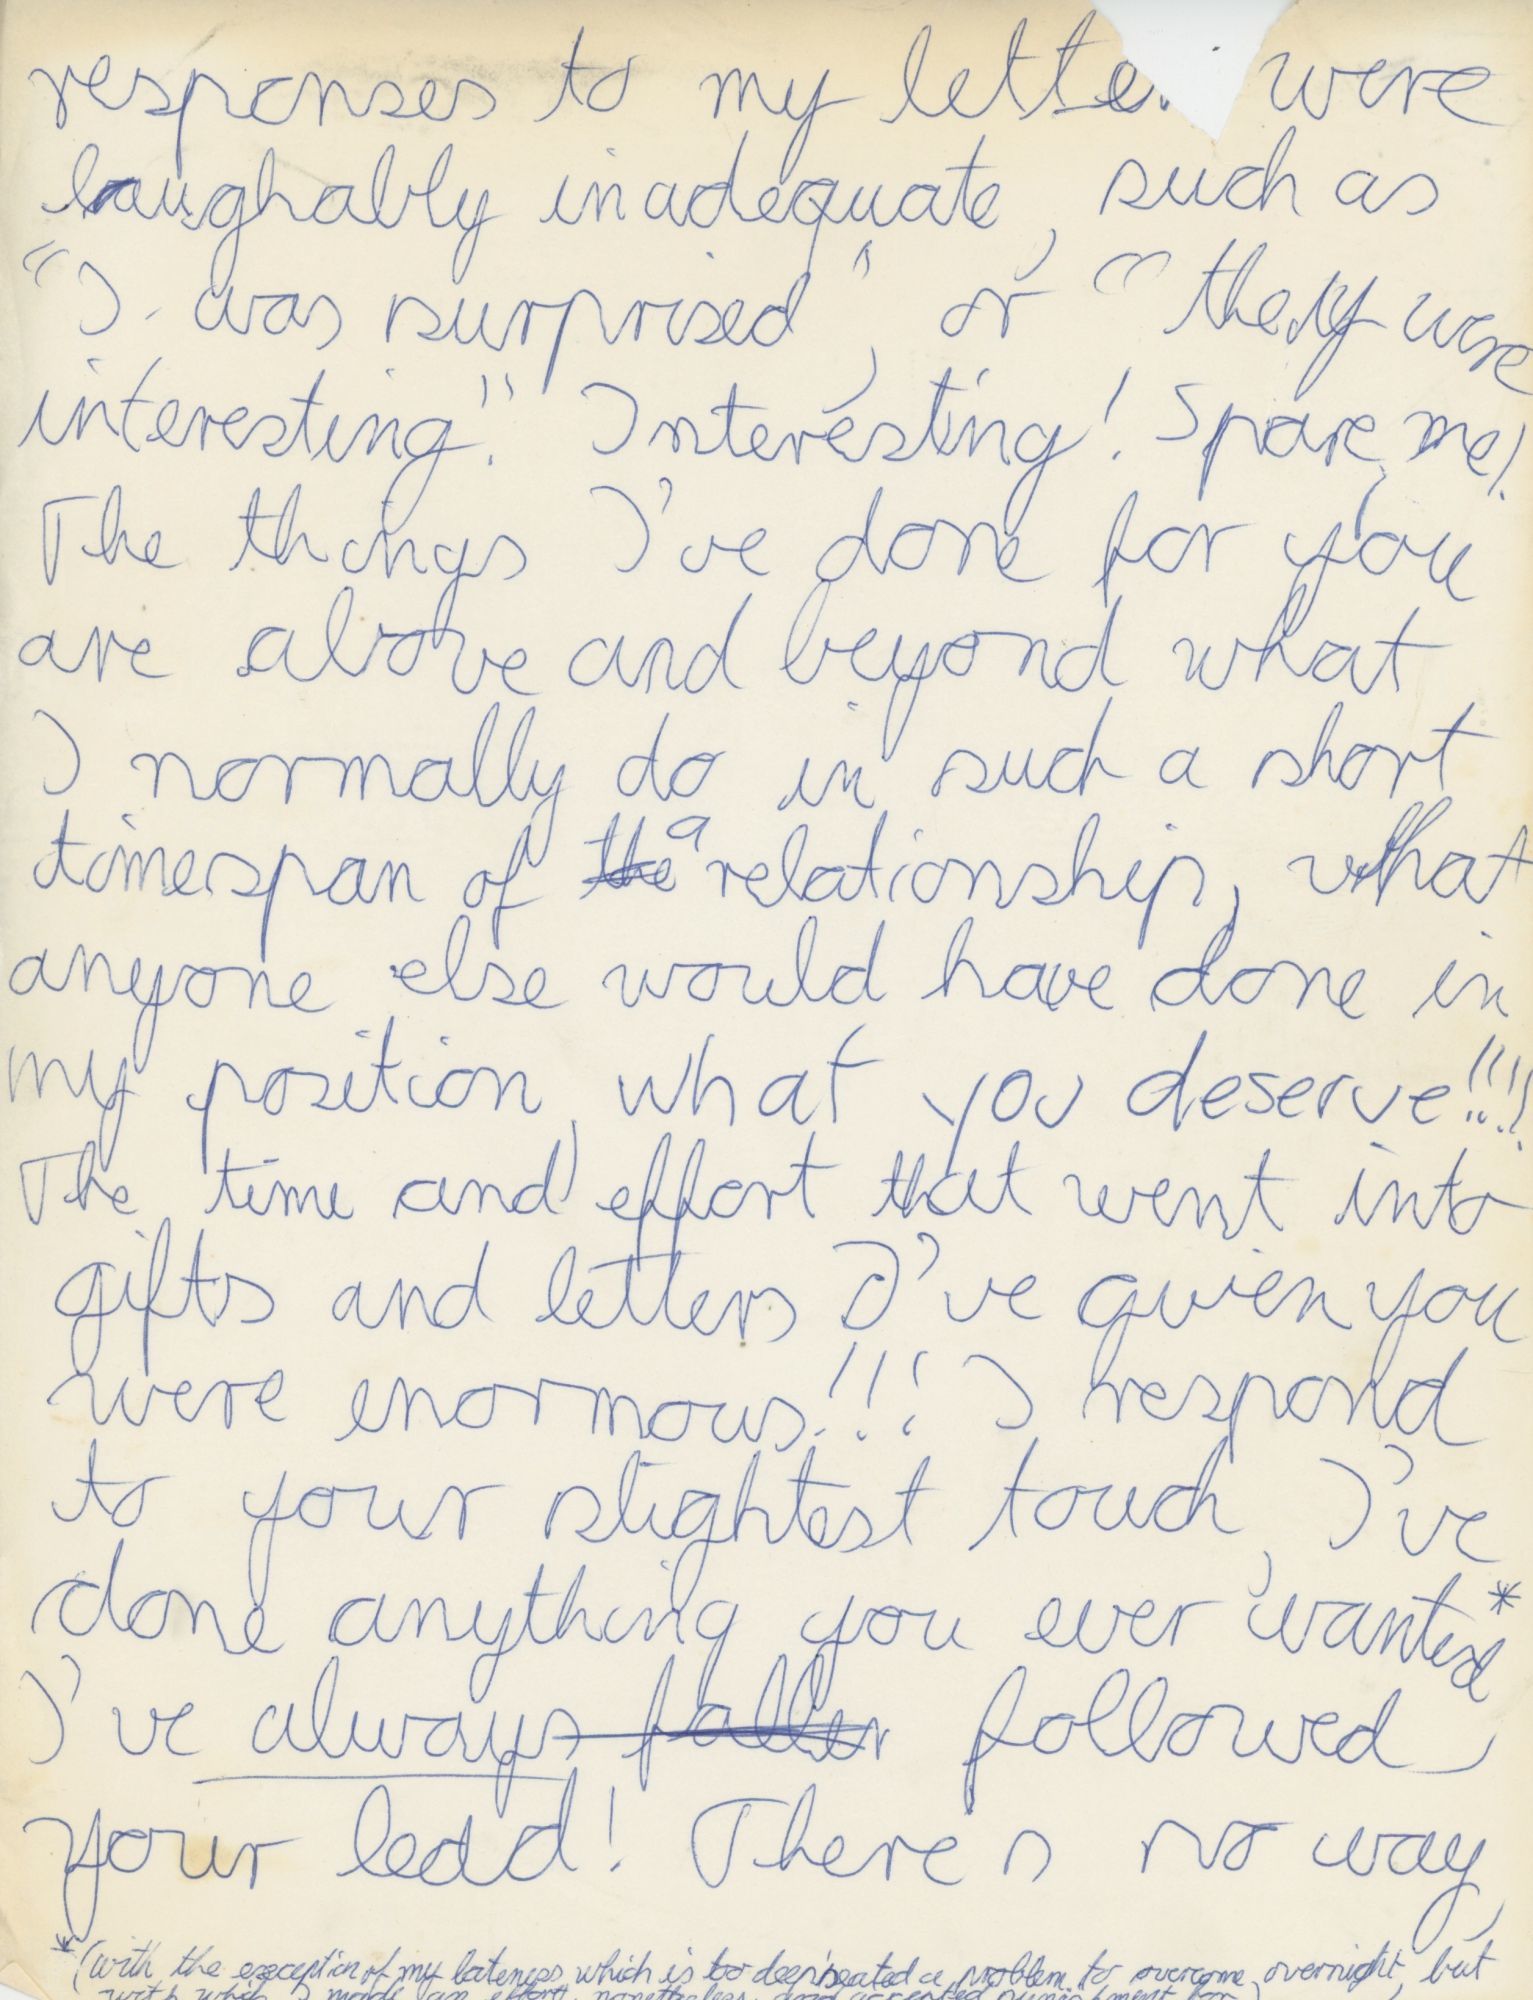 responses to my letter were
laughably inadequate, such as
"I was surprised", or "they were
interesting." Interesting! Spare me!
The things I've done for you
are above and beyond what
I normally do in such a short
timespan of the a relationship, what
anyone else would have done in
my position, what you deserve!!!!
The time and effort that went into
gifts and letters I've given you
were enormous!!! I respond
to your slightest touch, I've
done anything you ever wanted*,
I've always faller followed
your lead! There is no way,
*(with the exception of my lateness which is too deep seated a problem to overcome overnight, but
with which I made an effort, nonetheless, and accepted punishment for)